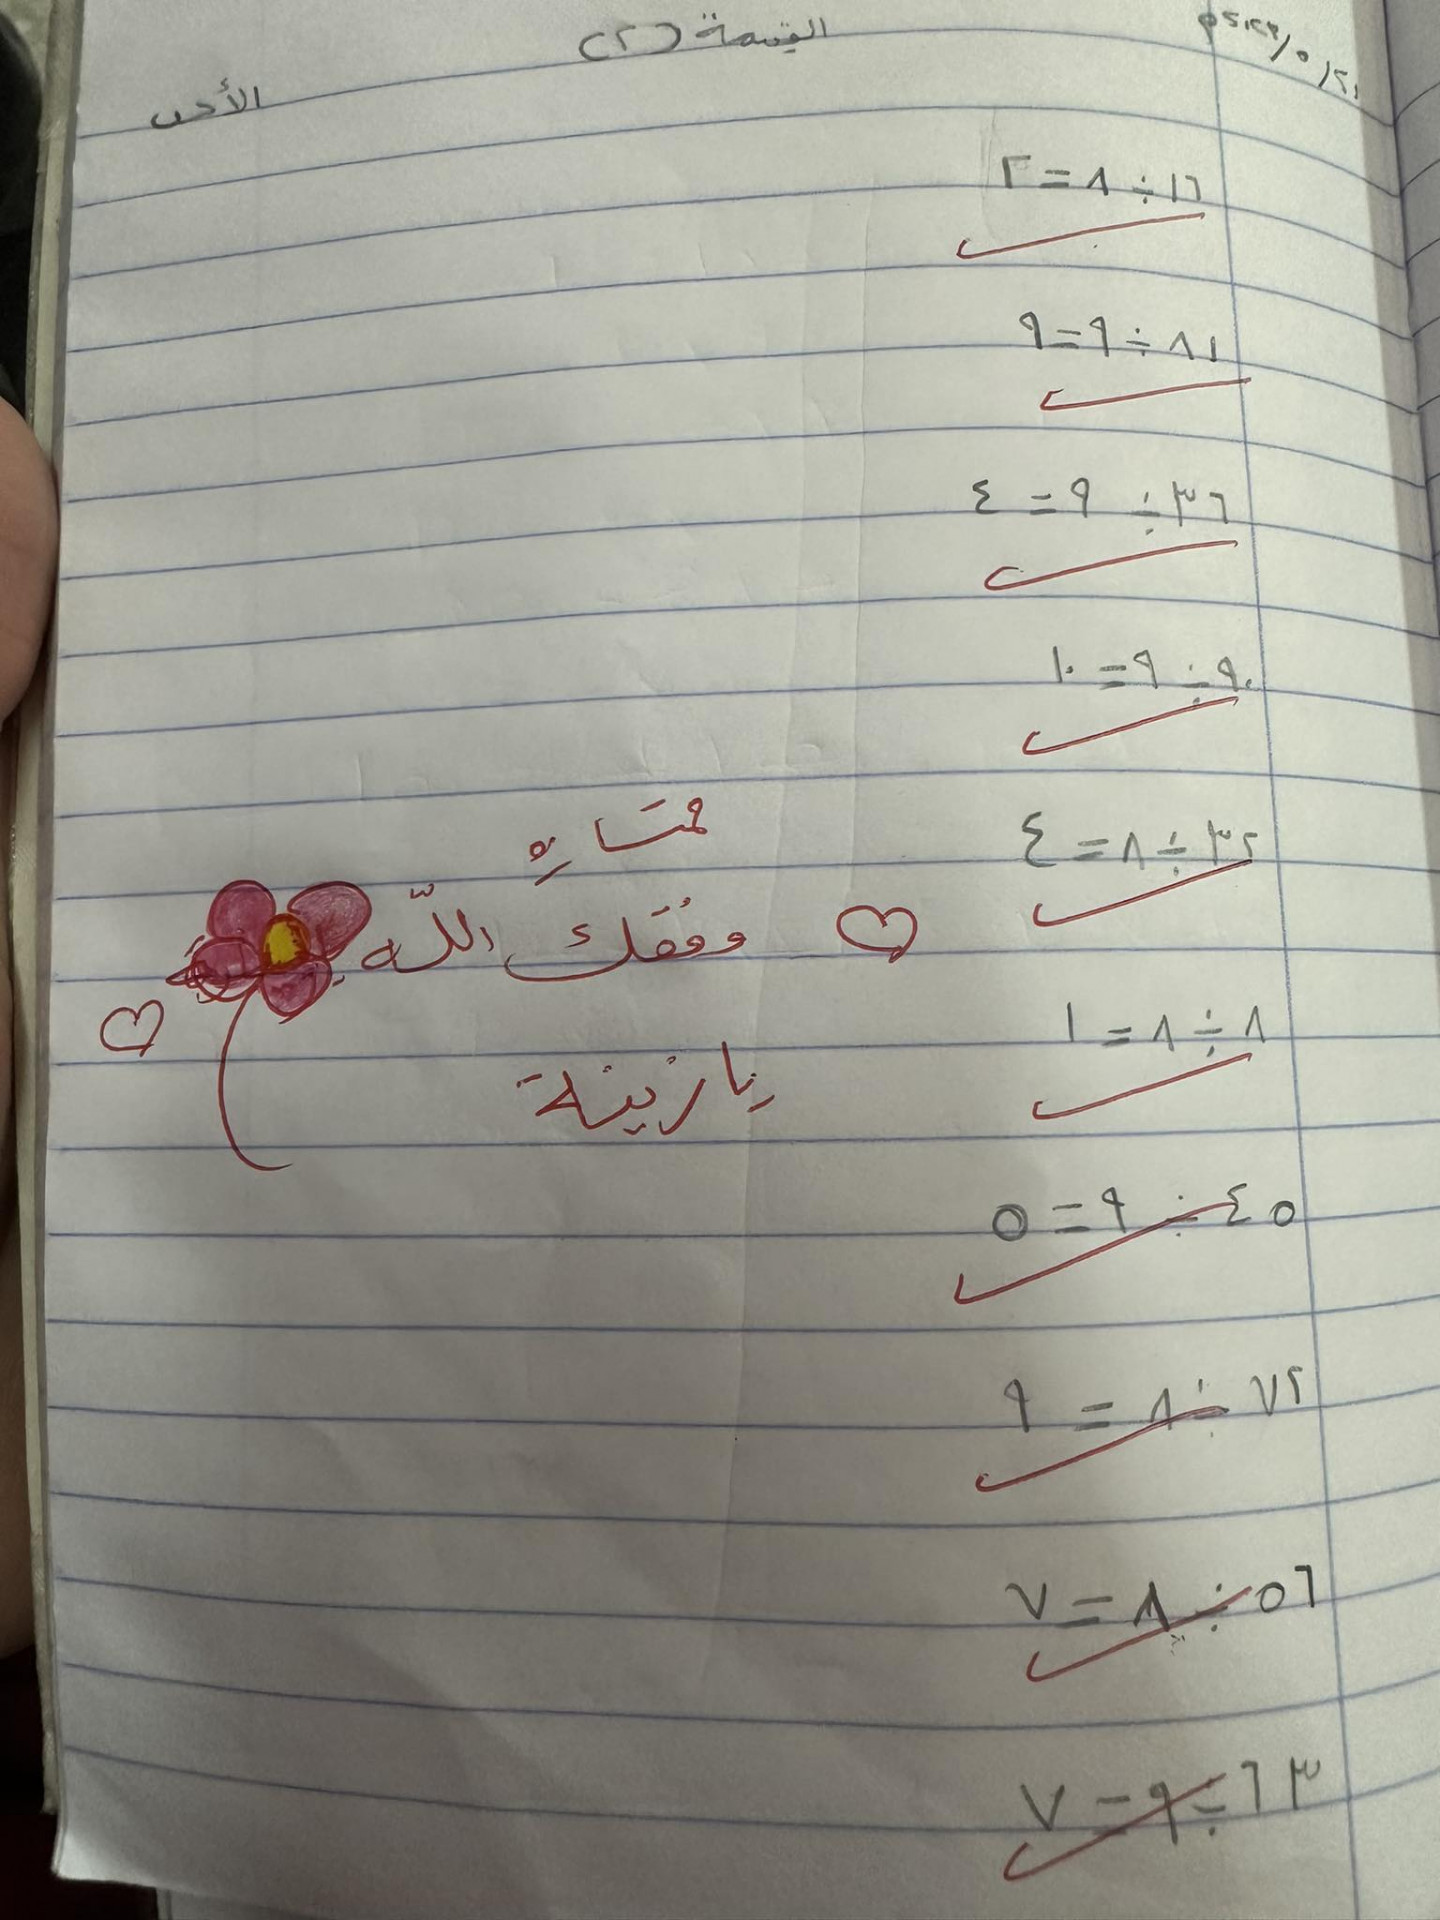 القسمة (٢)
الأحد
١٦ ÷ ٨ = ٢
٨١ ÷ ٩ = ٩
٣٦ ÷ ٩ = ٤
٩٠ ÷ ٩ = ١٠
٣٢ ÷ ٨ = ٤
٨ ÷ ٨ = ١
٤٥ ÷ ٩ = ٥
٧٢ ÷ ٨ = ٩
٥٦ ÷ ٨ = ٧
٦٣ ÷ ٩ = ٧
ممتازه
وفقك اللّه
يا زينة